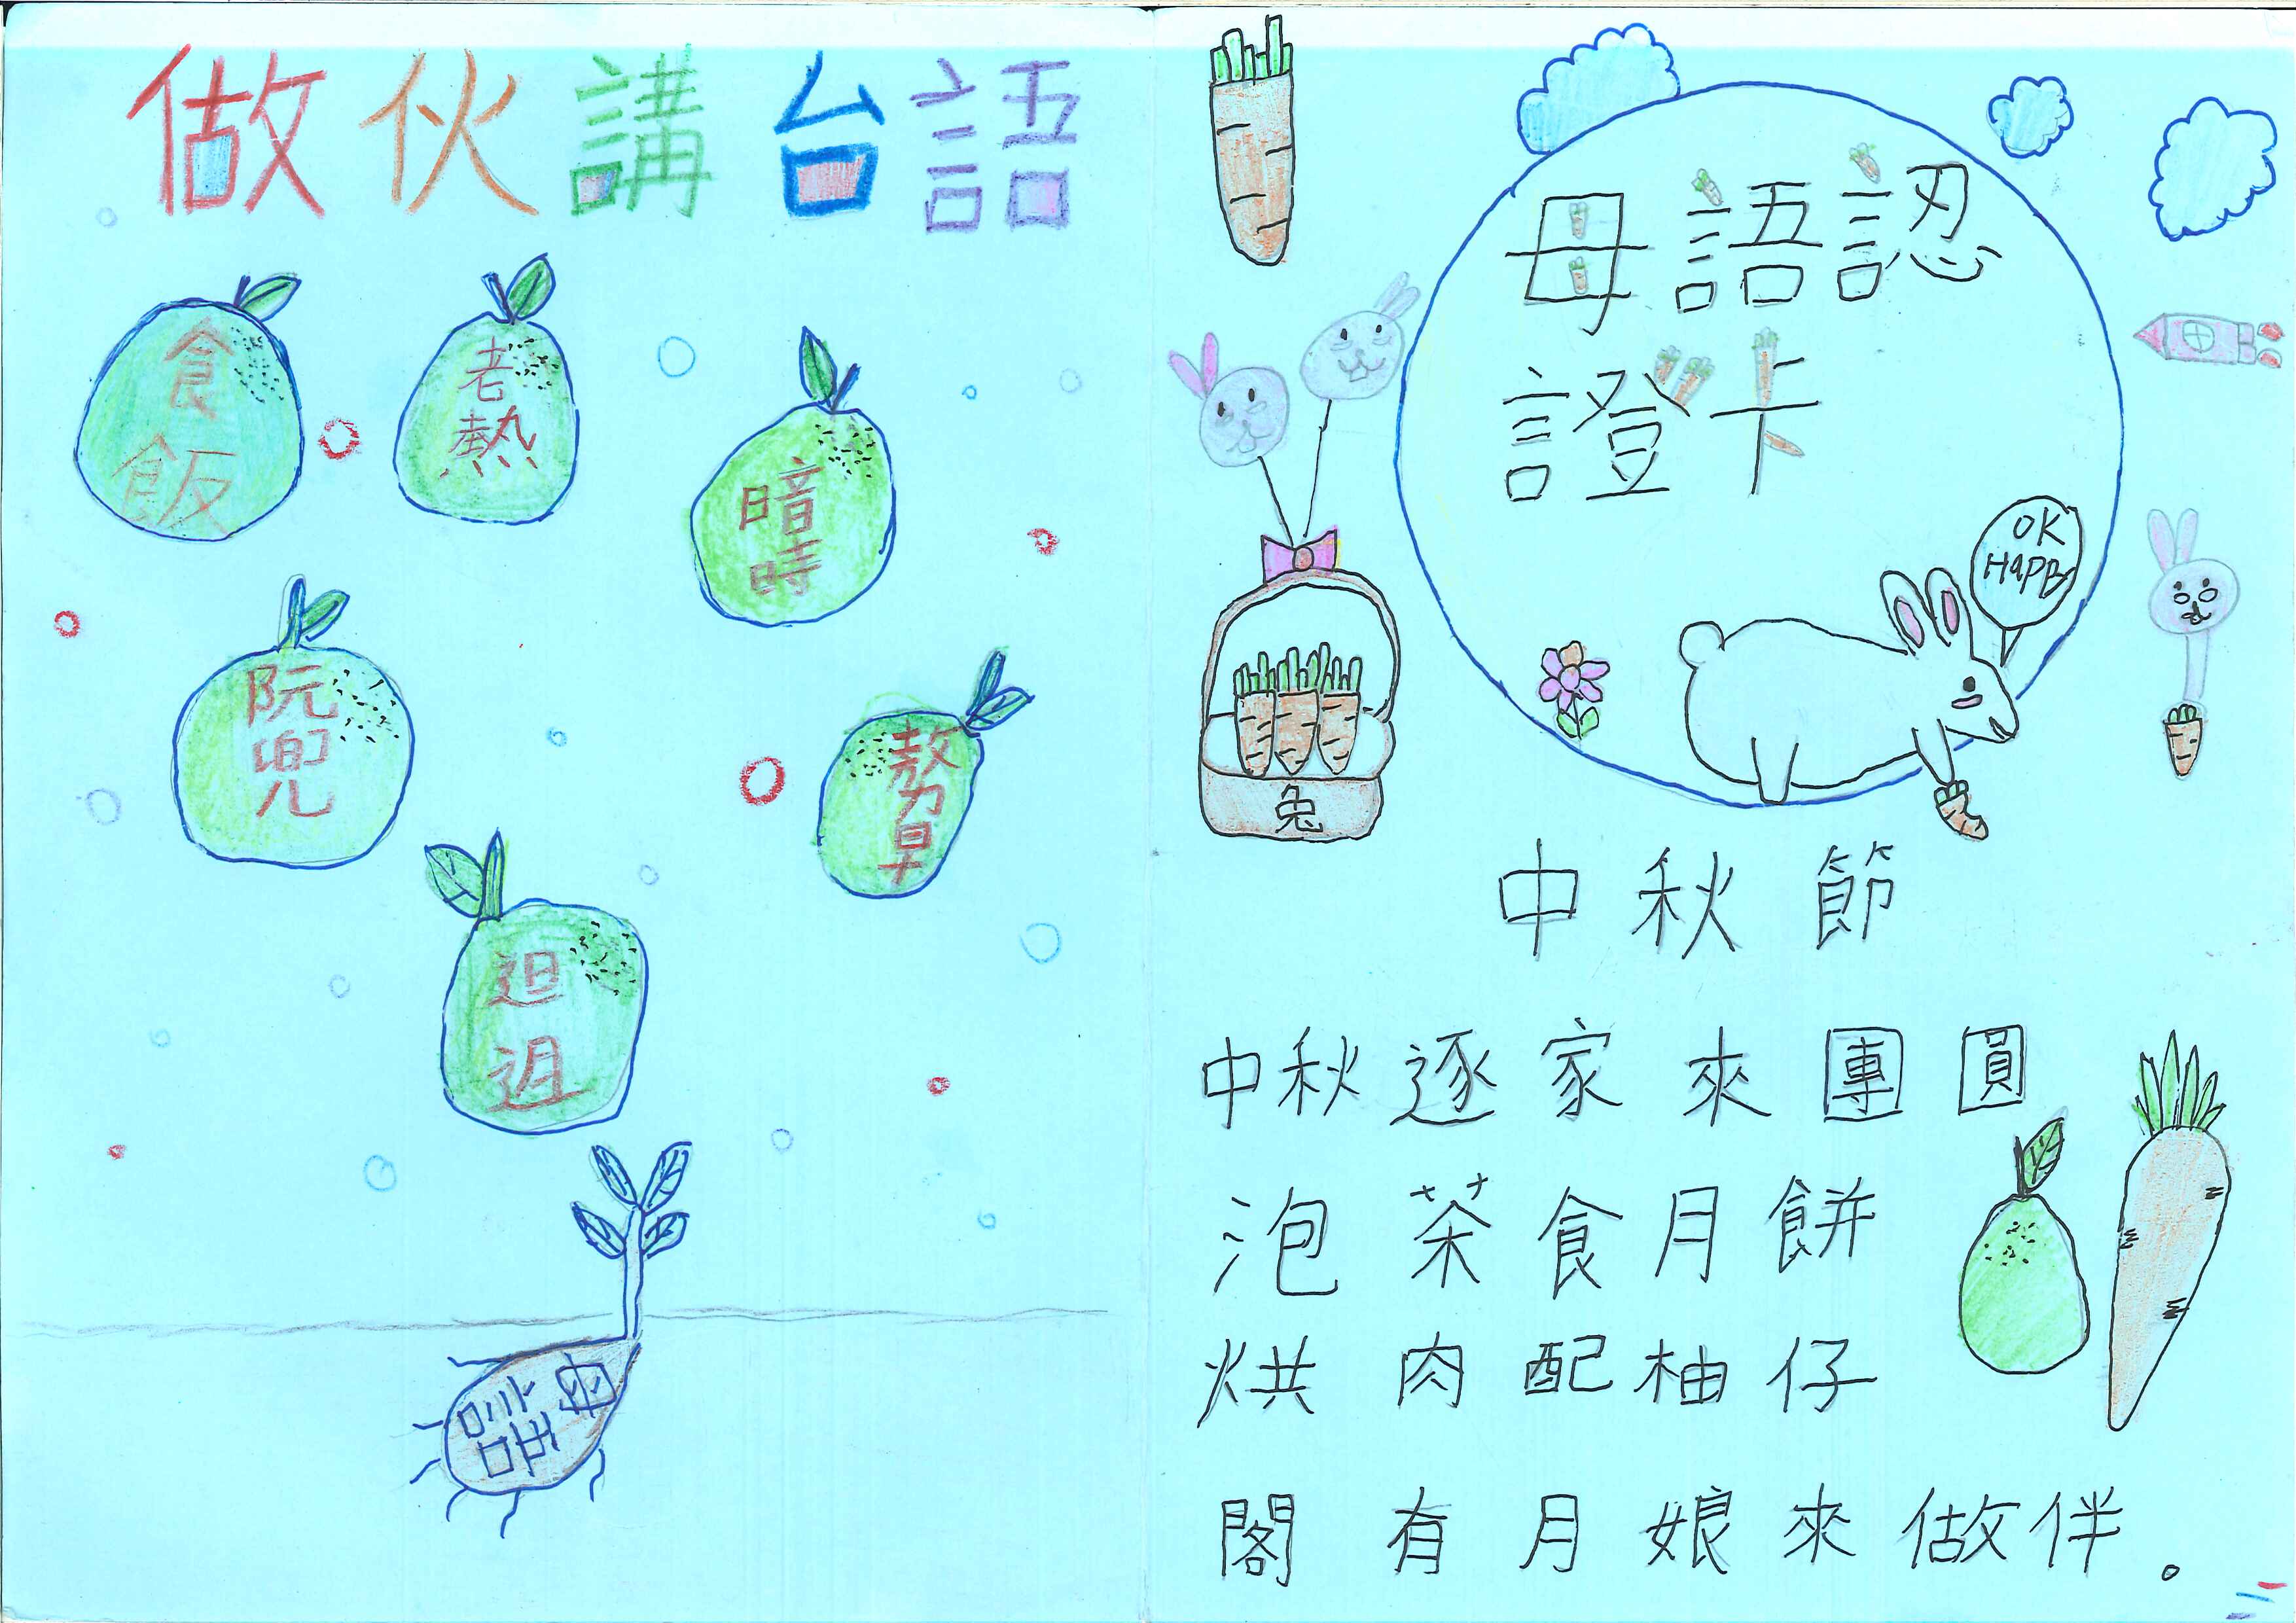 做伙講台語
食飯
老熱
暗時
阮兜
𠢕早
𨑨迌
母語認
證卡
OK
HaPPy
兔
中秋節
中秋逐家來團圓
泡茶食月餅
烘肉配柚仔
閣有月娘來做伴。